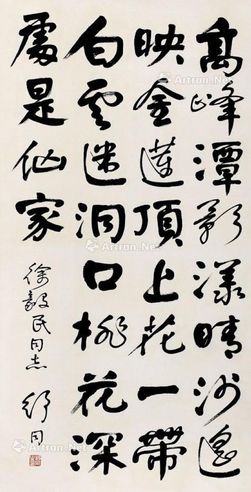 高峰潭影漾晴沙遙
映金蓮頂上花一帶
白雲迷洞口桃花深
處是仙家
徐毅民同志 舒同
Artron.Net